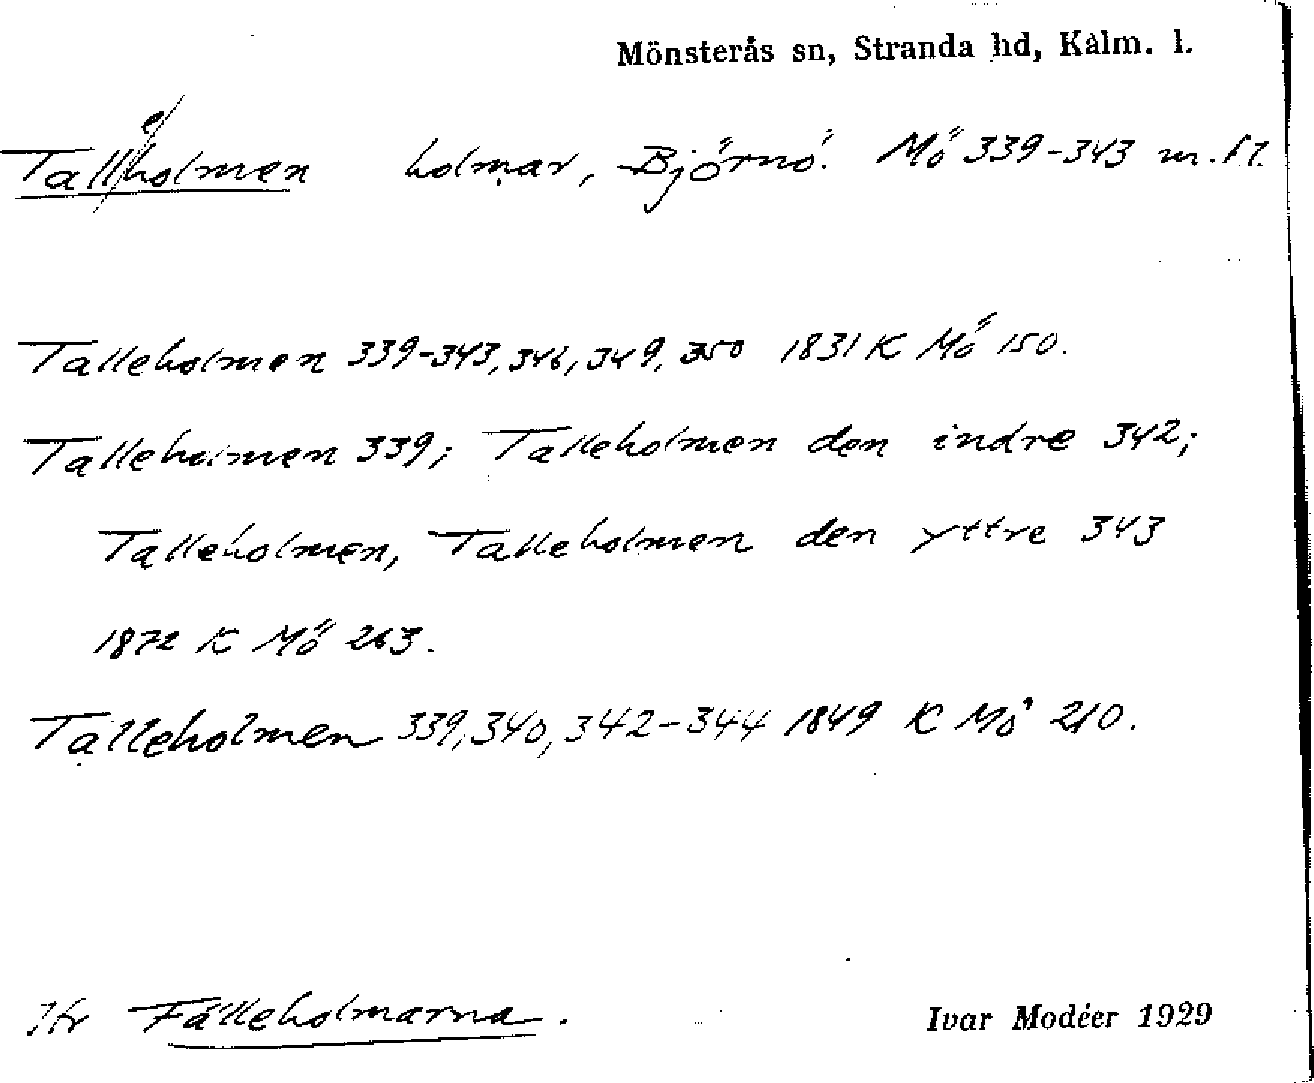 Mönsterås sn, Stranda hd, Kalm. l.
Talleholmen holmar, Björnö. Mö 339-343 m.fl.
Talleholmen 339-343, 346, 349, 350 1831 K Mö 150.
Talleholmen 339; Talleholmen den indre 342;
Talleholmen, Talleholmen den yttre 343
1872 K Mö 263.
Talleholmen 339, 340, 342-344 1849 K Mö 210.
Jfr Fälleholmarna.
Ivar Modéer 1929